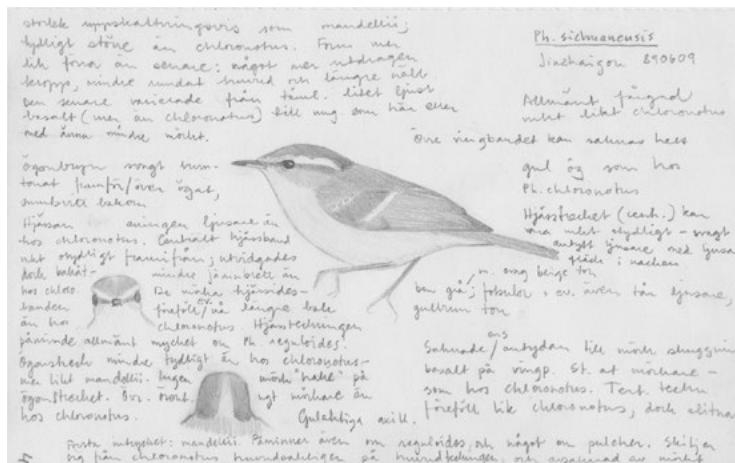 storlek uppskattningsvis som mandellii;
tydligt större än chloronotus. Form mer
lik forr. än senare: något mer utdragen
kropp, mindre rundat huvud och längre näbb.
Den senare varierade från täml. litet ljust
basalt (mer än chloronotus) till ung. som här eller
med ännu mindre mörkt.
Ögonbryn svagt brun-
tonat framför/över ögat,
Hjässan aningen ljusare än
hos chloronotus. Centralt hjässband
mkt otydligt framifrån; utvidgades
dock bakåt- mindre jämnbrett än
hos chloro. De mörka hjässides-
banden föreföll ev. nå längre bak
än hos chloronotus. Hjässteckningen
påminde allmänt mycket om Ph. reguloides.
Ögonstreck mindre tydligt än hos chloronotus-
mer likt mandellii. Ingen mörk "hake" på
ögonstrecket. Övs. mörkare än
hos chloronotus.
Gulaktiga axill.
Ph. sichuanensis
Jiuzhaigou 890609
Allmänt färgad
mkt likt chloronotus
Övre vingbandet kan saknas helt
gul ög som hos
Ph. chloronotus
Hjässtrecket (centr.) kan
vara mkt otydligt - svagt
antytt ljusare med ljusa
fläck i nacken
m. svag beige ton
ben grå; fotsulor, ev. även tår ljusare,
gulbrun ton
Saknade/ans antydan till mörk skuggning
basalt på vingp. St. at mörkare -
som hos chloronotus. Tert. teckn
föreföll lik chloronotus, dock slitna
Första intrycket: mandellii. Påminner även om reguloides, och något om pulcher. Skiljer
sig från chloronotus huvudsakligen på huvudteckningen, och avsaknad av mörkt